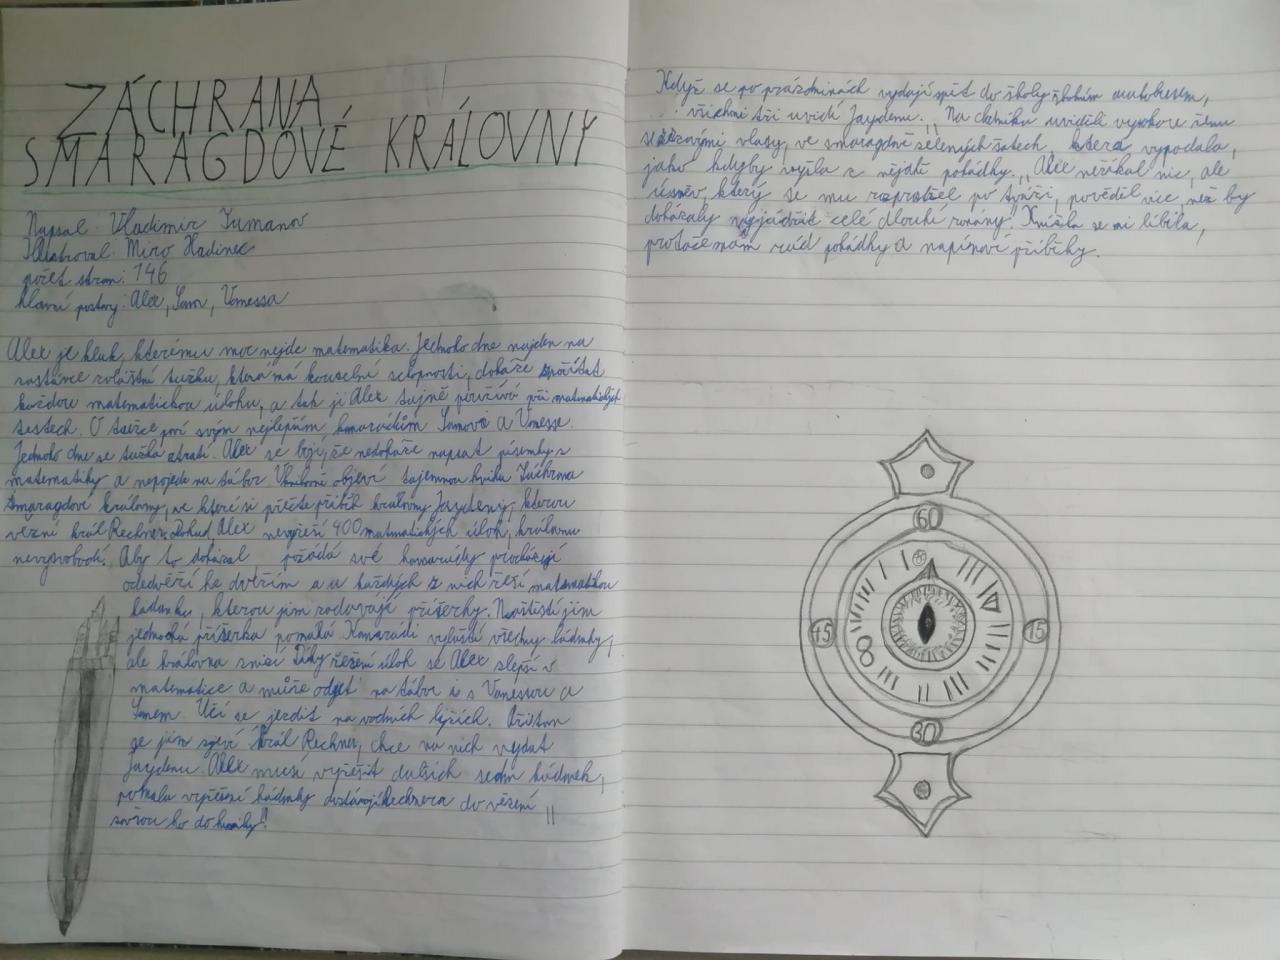 ZÁCHRANA
SMARAGDOVÉ KRÁLOVNY
Napsal: Vladimir Tumanov
Ilustroval: Miro Hadinec
počet stran: 146
hlavní postavy: Alex, Sam, Vanessa
Alex je kluk, kterému moc nejde matematika. Jednoho dne najden na
zastávce zvláštní tužku, která má kouzelné schopnosti, dokáže
každou matematickou úlohu, a tak ji Alex tajně používá při matematických
testech. O tužce poví svým nejlepším kamarádům Samovi a Vanesse.
Jednoho dne se tužka ztratí. Alex se bojí, že nedokáže napsat písemky z
matematiky a nepojede na tábor. V knihovně objeví tajemnou knihu Záchrana
Smaragdové královny, ve které si přečte příběh královny Jaydeny, kterou
vězní král Rechner. Dokud Alex nevyřeší 400 matematických úloh, královnu
nevysvobodí. Aby to dokázal požádá své kamarády procházejí
ode dveří ke dveřím a u každých z nich řeší matematickou
hádanku, kterou jim zadávají příšerky. Naštěstí jim
jednooká příšerka pomáhá Kamarádi vyluští všechny hádanky,
ale královna zmizí Díky řešení úloh se Alex zlepší v
matematice a může odjet na tábor i s Vanessou a
Samem. Učí se jezdit na vodních lyžích. Přitom
se jim zjeví král Rechner, chce na nich vydat
Jaydenu. Alex musí vyřešit dalších sedm hádanek,
pomalu vyřešení hádanky dostávají Rechnera do vězení
zavřou ho do knihy!
Když se po prázdninách vydají zpět do školy školním autobusem,
všichni tři uvidí Jaydenu. „Na chodníku uviděli vysokou ženu
s vlasy, ve smaragdně zelených šatech, která vypadala,
jako kdyby vyšla z nějaké pohádky. „Alex neříkal nic, ale
úsměv, který se mu rozprostřel po tváři, pověděl víc než by
dokázaly vyjádřit celé dlouhé romány." Knížka se mi líbila,
protože mám rád pohádky a napínavé příběhy.
60
15
30
45